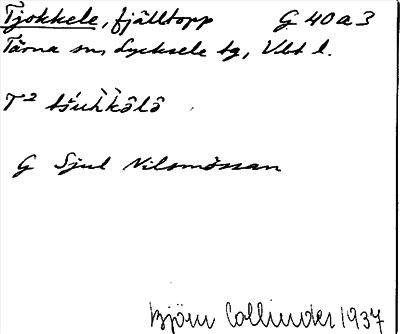 Tjokkele, fjälltopp G 40 a 3
Tärna sn, Lycksele lg, Vbt l.
T² tšuh̀k̀ōlō
G Sjul Nilsmössan
Björn Collinder 1937